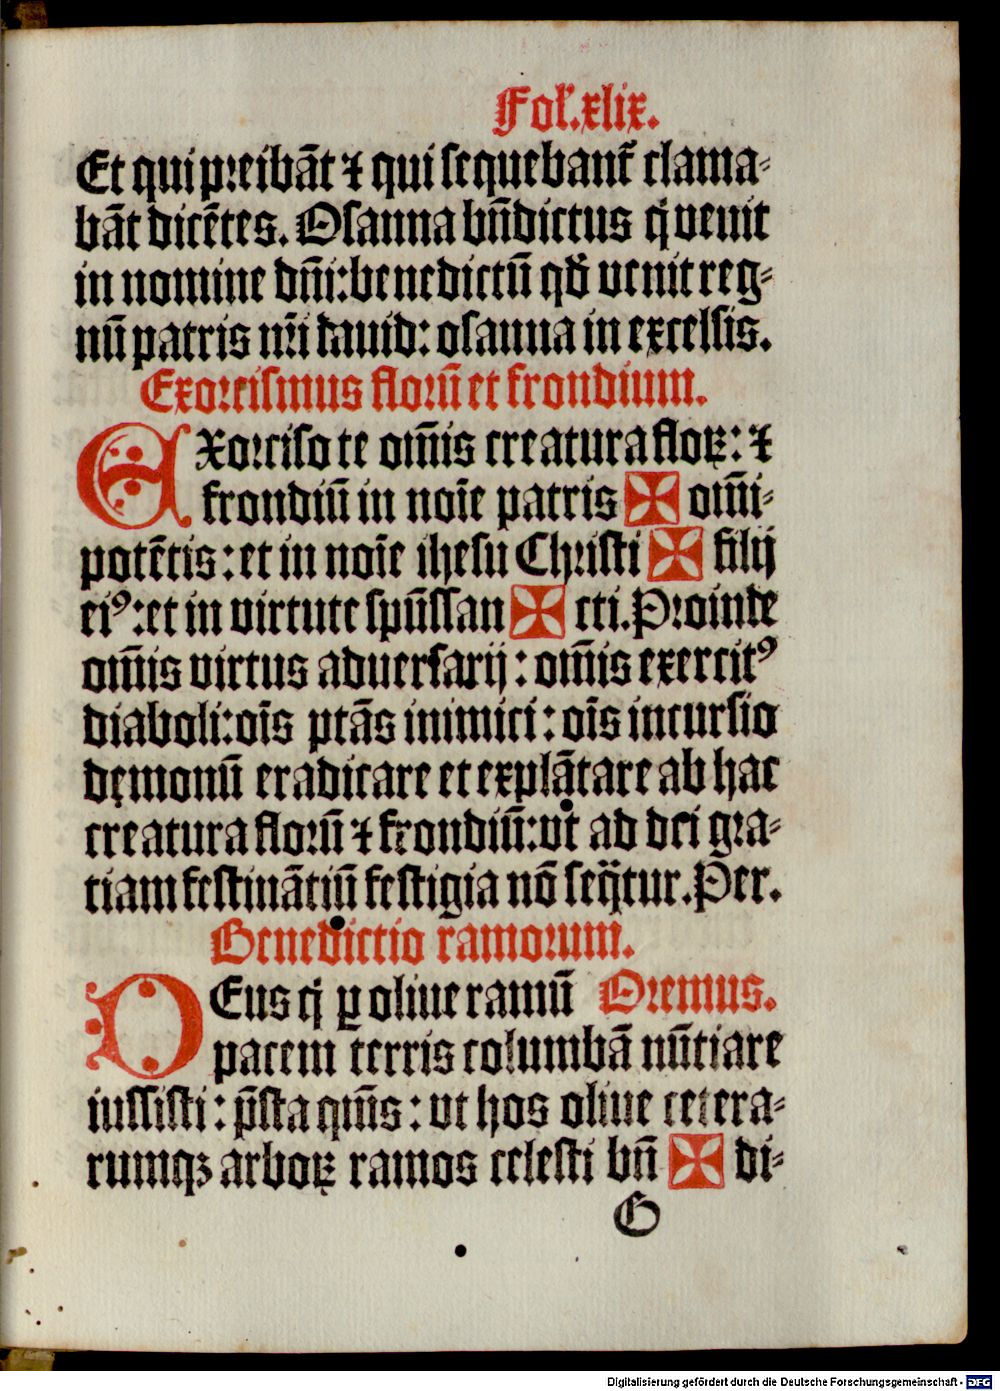 Fol'.xlix.
Et qui preibāt ⁊ qui sequebant᷑ clama⸗
bāt dicētes. Osanna bn̄dictus q̇ venit
in nomine dn̄i: benedictū qđ venit reg⸗
nū patris nr̄i dauid: osanna in excelsis.
Exorcismus florū et frondium.
EXorciso te om̄is creatura floꝝ: ⁊
frondiū in noīe patris ✠ om̄i⸗
potētis: et in noīe ihesu Christi ✠ filij
eiꝰ: et in virtute spūssan ✠ cti. Proinde
om̄is virtus aduersarij: om̄is exercitꝰ
diaboli: oīs ptās inimici: oīs incursio
dęmonū eradicare et explātare ab hac
creatura florū ⁊ frondiū: vt ad dei gra⸗
tiam festinātiū festigia nō seq̄tur. Per.
Benedictio ramorum.
DEus q̇ ꝑ oliue ramū Oremus.
pacem terris columbā nūtiare
iussisti: p̄sta qm̄s: vt hos oliue cetera⸗
rumqꝫ arboꝝ ramos celesti bn̄ ✠ di⸗
G
Digitalisierung gefördert durch die Deutsche Forschungsgemeinschaft - DFG